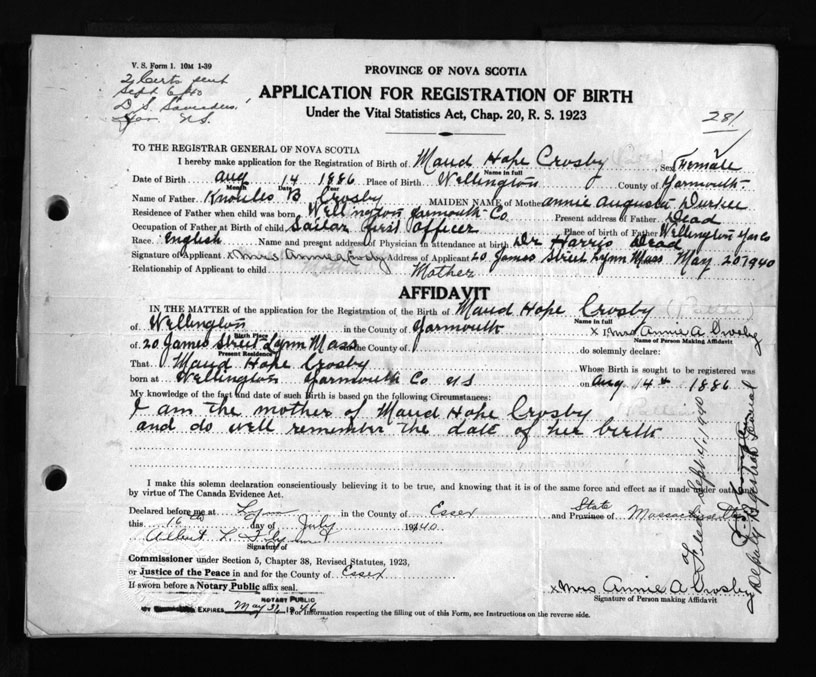 V. S. Form 1. 10M 1-39
2 Certs sent
Sept 6/40
D. S. Saunders
N.S.
PROVINCE OF NOVA SCOTIA
APPLICATION FOR REGISTRATION OF BIRTH
Under the Vital Statistics Act, Chap. 20, R. S. 1923
281
TO THE REGISTRAR GENERAL OF NOVA SCOTIA
I hereby make application for the Registration of Birth of Maud Hope Crosby Sex Female
Name in full
Date of Birth Aug 14 1886 Place of Birth Wellington County of Yarmouth
Month Date Year
Name of Father Knowles B Crosby MAIDEN NAME of Mother Annie Augusta Durkee
Residence of Father when child was born Wellington Yarmouth Co Present address of Father Dead
Occupation of Father at Birth of child Sailor First Officer Place of birth of Father Wellington Yar Co
Race English Name and present address of Physician in attendance at birth Dr Harris Dead
Signature of Applicant x Mrs Annie A Crosby Address of Applicant 20 James Street Lynn Mass May 20 1940
Relationship of Applicant to child Mother
AFFIDAVIT
IN THE MATTER of the application for the Registration of the Birth of Maud Hope Crosby
Name in full
of Wellington in the County of Yarmouth x Mrs Annie A Crosby
Birth Place Name of Person Making Affidavit
of 20 James Street Lynn Mass in the County of do solemnly declare:
Present Residence
That Maud Hope Crosby Whose Birth is sought to be registered was
born at Wellington Yarmouth Co NS on Aug 14th 1886
My knowledge of the fact and date of such Birth is based on the following Circumstances:
I am the mother of Maud Hope Crosby
and do well remember the date of her birth
I make this solemn declaration conscientiously believing it to be true, and knowing that it is of the same force and effect as if made under oath
by virtue of The Canada Evidence Act.
Declared before me at Lynn in the County of Essex and State Province of Massachusetts
this 16th day of July 1940
Albert L.
Signature of
Commissioner under Section 5, Chapter 38, Revised Statutes, 1923,
or Justice of the Peace in and for the County of Essex
If sworn before a Notary Public affix seal.
x Mrs Annie A Crosby
Signature of Person making Affidavit
NOTARY PUBLIC
EXPIRES May 31, 1946
For Information respecting the filling out of this Form, see Instructions on the reverse side.
Filed Sept 4, 1940
Deputy Registrar General